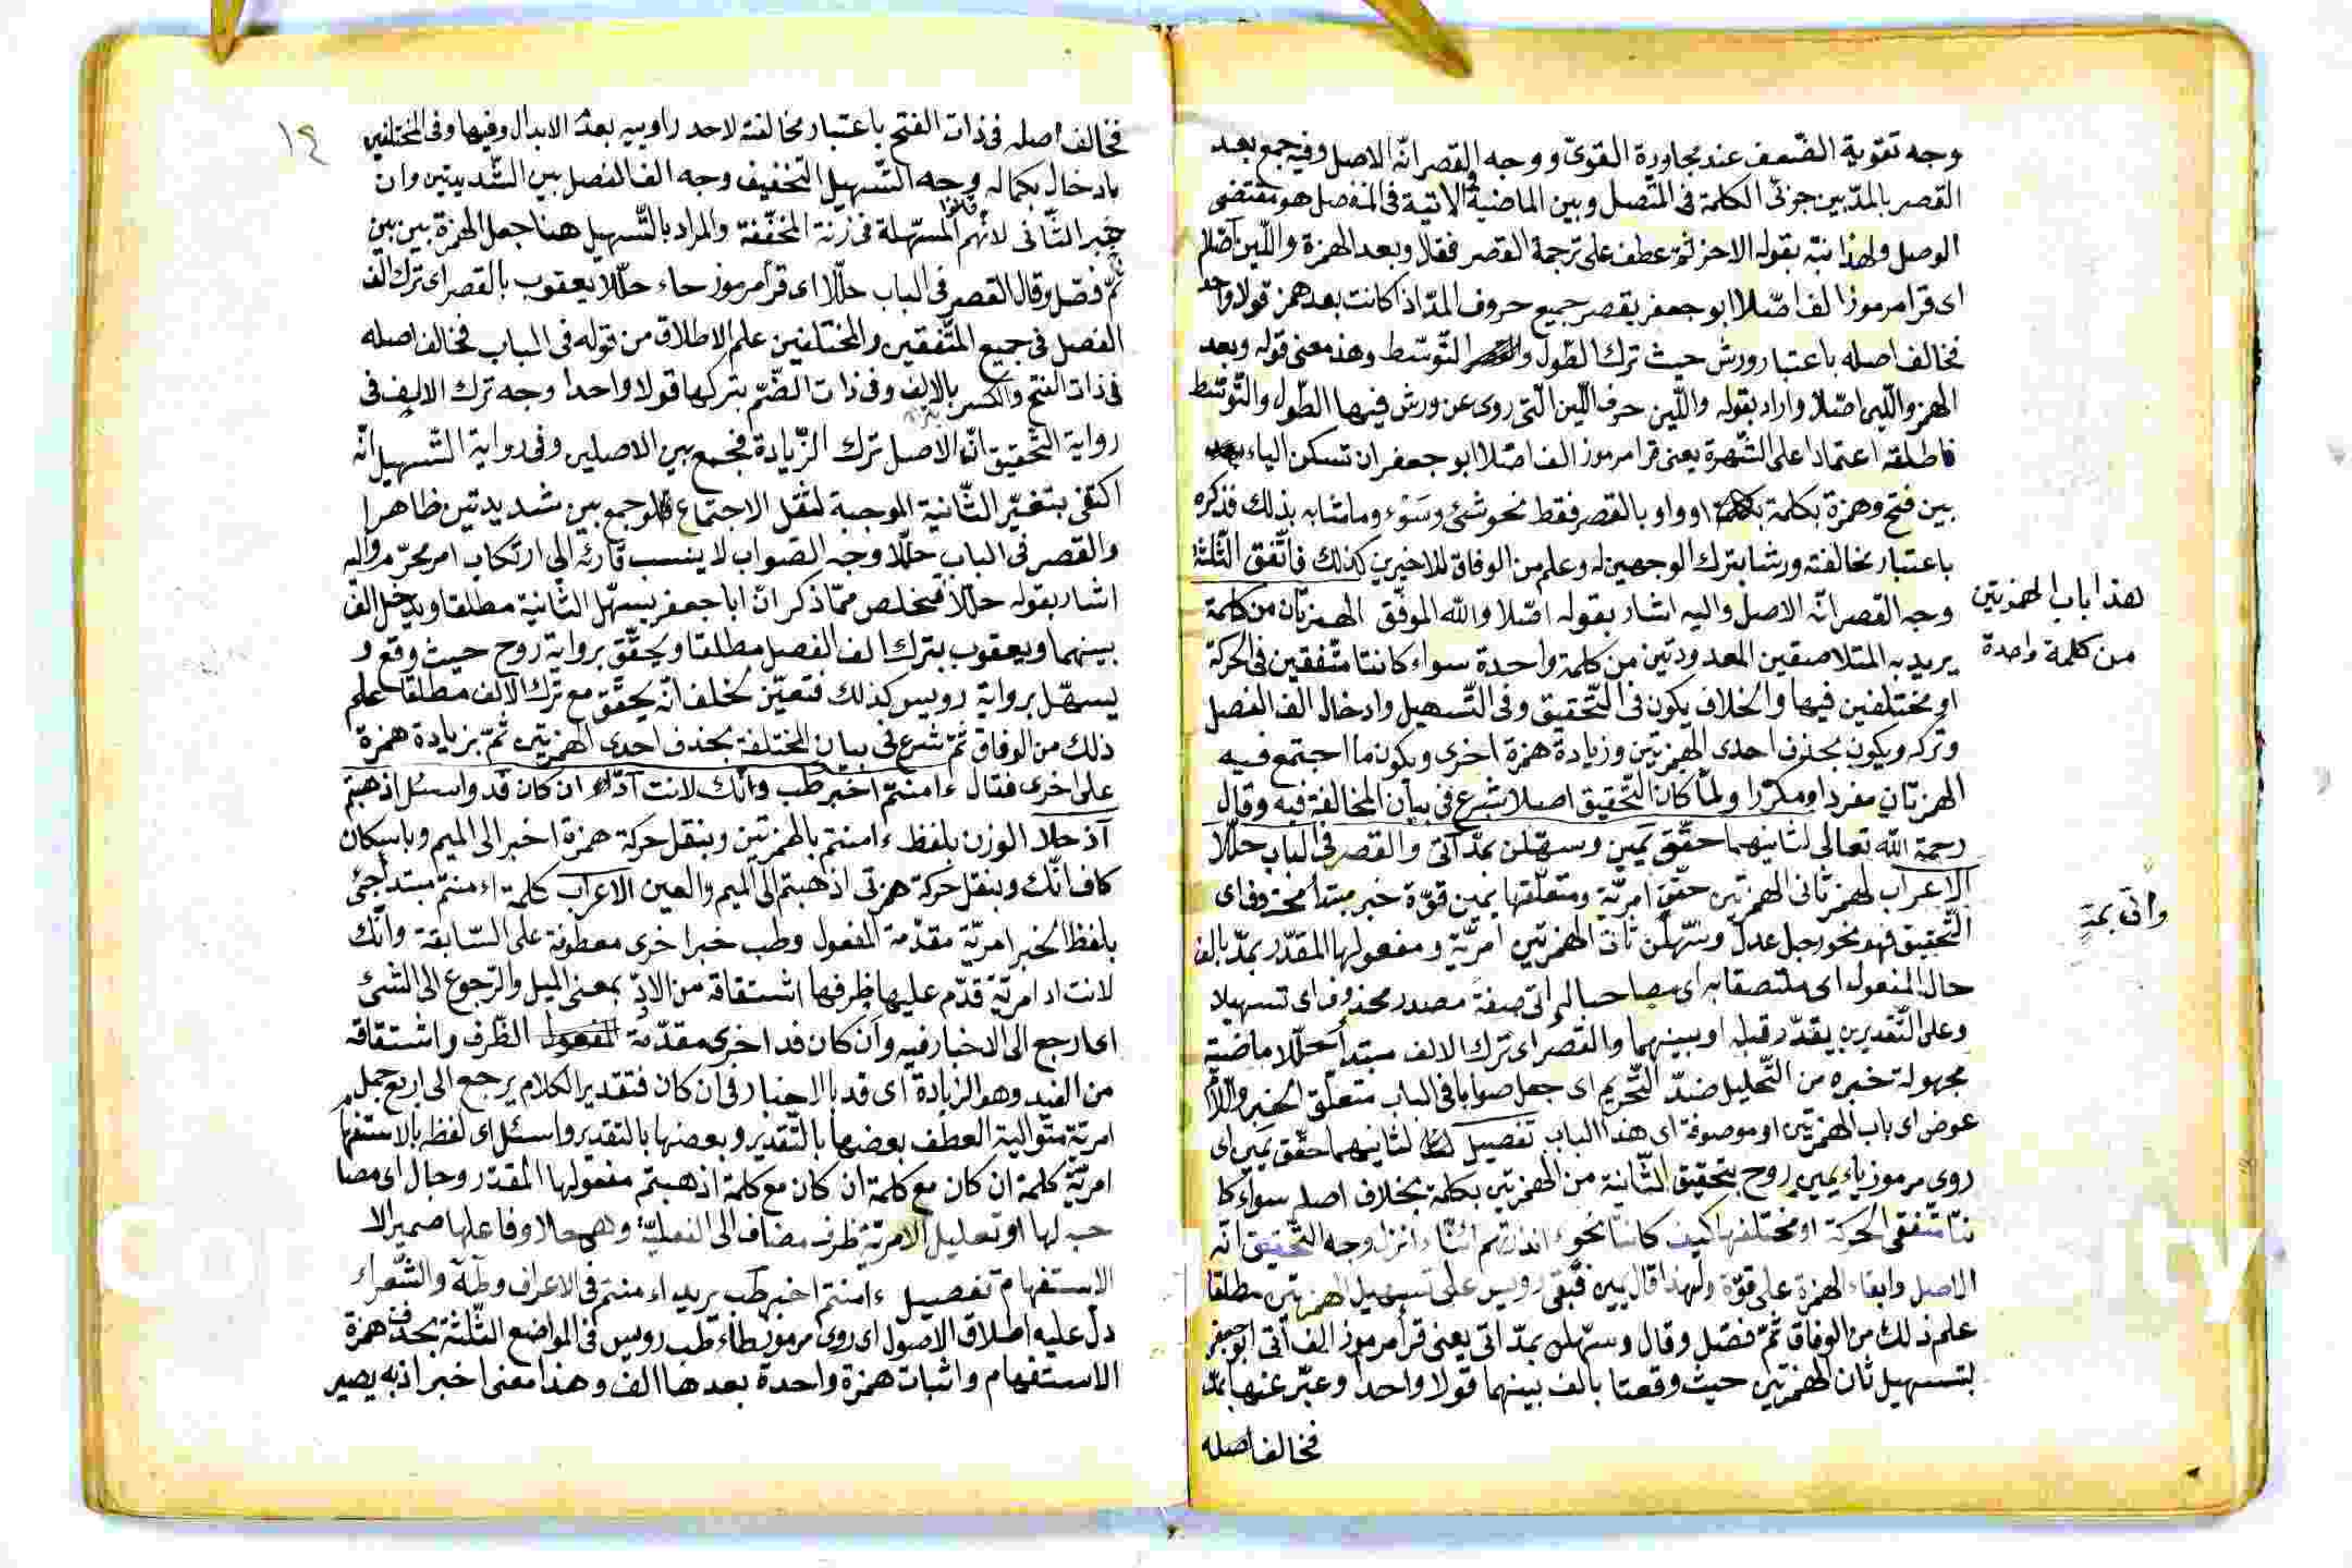 وجه تقوية الضّعف عند مجاورة القويّ ووجه القصر انّه الاصل وفيه جمع بعد
القصر بالمدّ بين جزئى الكلمة فى المتّصل وبين الماضية والاتية فى المنفصل هو مقتضى
الوصل ولهذا نبّه بقوله الاحز ثمّ عطف على ترجمة القصر فقال وبعد الهمزة واللّين اصّلا
اى قرا مرموز الف اصّلا ابو جعفر بقصر جميع حروف المدّ اذا كانت بعد همز قولا واحدا
فخالف اصله باعتبار ورش حيث ترك الطّول والتّوسّط وهذ معنى قوله وبعد
الهمز واللّين اصّلا واراد بقوله واللّين حرف اللّين الّتى روى عن ورش فيها الطّول والتّوسّط
فاطلقه اعتمادا على الشّهرة يعنى قرا مرموز الف اصّلا ابو جعفر ان تسكن الياء
بين فتح وهمزة بكلمة او واو بالقصر فقط نحو شئ وسَوْء وما شابه بذلك فذكره
باعتبار مخالفته ورشا بترك الوجهين له وعلم من الوفاق للاخيرين كذلك فاتّفق الثّلثة
وجه القصر انّه الاصل واليه اشار بقوله اصّلا والله الموفّق الهمزتان من كلمة
هذا باب الهمزتين
من كلمة واحدة
يريد به المتلاصقين المعدودتين من كلمة واحدة سواء كانتا متّفقين فى الحركة
او مختلفين فيها والخلاف يكون فى التّحقيق وفى التّسهيل وادخال الف الفصل
وتركه ويكون بحذف احدى الهمزتين وزيادة همزة اخرى ويكون ما اجتمع فيه
الهمزتان مفردا ومكرّرا ولمّا كان التّحقيق اصلا شرع فى بيان المخالفة فيه وقال
رحمة الله تعالى لثانيهما حقّق يمين وسهّلن بمدّ اتى والقصر فى الباب حلّلا
الاعراب لهمز ثانى الهمزتين حقّق امريّة ومتعلّقها يمين قوّة خبر مبتدأ محذوف اى
واتى بمدّ
التّحقيق فهو نحو رجل عدل وسهّلن ثان الهمزتين امريّة ومفعولها المقدّر بمدّ بالف
حال المفعول اى ملتصقا به اى مصاحبا له اتى صفة مصدر محذوف اى تسهيلا
وعلى التّقديرين يقدّر قبله او بينهما والقصر اى ترك الالف مبتدأ حلّلا ماضية
مجهولة خبره من التّحليل ضدّ التّحريم اى جعل صوابا فى الباب متعلّق الخبر واللّام
عوض اى باب الهمزتين او موصوفة اى هذا الباب تفصيل لثانيهما حقّق يمين اى
روى مرموز ياء يمين روح بتحقيق الثّانية من الهمزتين بكلمة بخلاف اصله سواء كا
نتا متّفقى الحركة او مختلفها كيف كانتا نحو ءانذرتهم ائنّا ءانزل وجه التّحقيق انّه
الاصل وابقاء الهمزة على قوّة ولهذا قال يمين فبقى رويس على تسهيل الهمزتين مطلقا
علم ذلك من الوفاق ثمّ فصّل وقال وسهّلن بمدّ اتى يعنى قرأ مرموز الف اتى ابو جعفر
بتسهيل ثان الهمزتين حيث وقعتا بالف بينهما قولا واحدا وعبّر عنها بمدّ
فخالف اصله
١٤
فخالف اصله فى ذات الفتح باعتبار مخالفة لاحد راوييه بعدُ الابدال وفيها وفى المختلفين
بادخال بكماله وجه التّسهيل التخفيف وجه الف الفصل بين الشّديدتين وان
خبر الثّانى لانّهم قالوا المسهّلة فى زنة المخفّفة والمراد بالتّسهيل هنا جعل الهمزة بين بين
ثمّ فصّل وقال القصر فى الباب حلّلا اى قرأ مرموز حاء حلّلا يعقوب بالقصر اى ترك الف
الفصل فى جميع المتّفقين والمختلفين علم الاطلاق من قوله فى الباب فخالف اصله
فى ذات الفتح والكسر بالالف وفى ذات الضّمّ بتركها قولا واحدا وجه ترك الالف فى
رواية التّحقيق انّه الاصل ترك الزّيادة فجمع بين الاصلين وفى رواية التّسهيل انّه
اكتفى بتغيّر الثّانية الموجبة لثقل الاجتماع فلو جمع بين شديدتين ظاهرا
والقصر فى الباب حلّلا وجه الصّواب لا ينسب قارئه الى ارتكاب امر محرّم واليه
اشار بقوله حلّلا فتخلص ممّا ذكر انّ ابا جعفر يسهّل الثّانية مطلقا ويدخل الف
بينهما ويعقوب بترك الف الفصل مطلقا ويحقّق برواية روح حيث وقع و
يسهّل برواية رويس كذلك فتعيّن لخلف انّه يحقّق مع ترك الالف مطلقا علم
ذلك من الوفاق ثمّ شرع فى بيان المختلفة بحذف احدى الهمزتين ثمّ بزيادة همزة
على اخرى فقال ءامنتم اخبر طب وانّك لانت ادّ ان كان فد واسئل اذهبتم
اذ حلا الوزن بلفظ ءامنتم بالهمزتين وبنقل حركة همزة اخبر الى الميم وباسكان
كاف انّك وبنقل حركة همزتى اذهبتم الى الميم والعين الاعراب كلمة ءامنتم مبتدأ جئ
بلفظ الخبر امريّة مقدّمة المفعول وطب خبر اخرى معطوفة على السّابقة وانّك
لانت اد امريّة قدّم عليها ظرفها اشتقاقه من الادّ بمعنى الميل والرّجوع الى الشئ
اى ارجع الى الاخبار فيه وان كان فد اخرى مقدّمة الظّرف واشتقاقه
من الفيد وهو الزيادة اى قد بالاخبار فى ان كان فتقدير الكلام يرجع الى اربع جمل
امريّة متوالية العطف بعضها بالتّقدير وبعضها بالتقدير واسئل اى لفظ بالاستفها
امريّة كلمة ان كان مع كلمة ان كان مع كلمة اذهبتم مفعولها المقدّر وحال اى مصا
حبه لها او تعليل الامريّة ظرف مضاف الى الفعليّة وهى حلا وفاعلها ضمير الا
الاستفهام تفصيل ءامنتم اخبر طب يريد ءامنتم فى الاعراف وطه والشّعراء
دلّ عليه اطلاق الاصول اى روى مرموز طاء طب رويس فى المواضع الثّلثة بحذف همزة
الاستفهام واثبات همزة واحدة بعدها الف وهذا معنى اخبر اذ به يصير